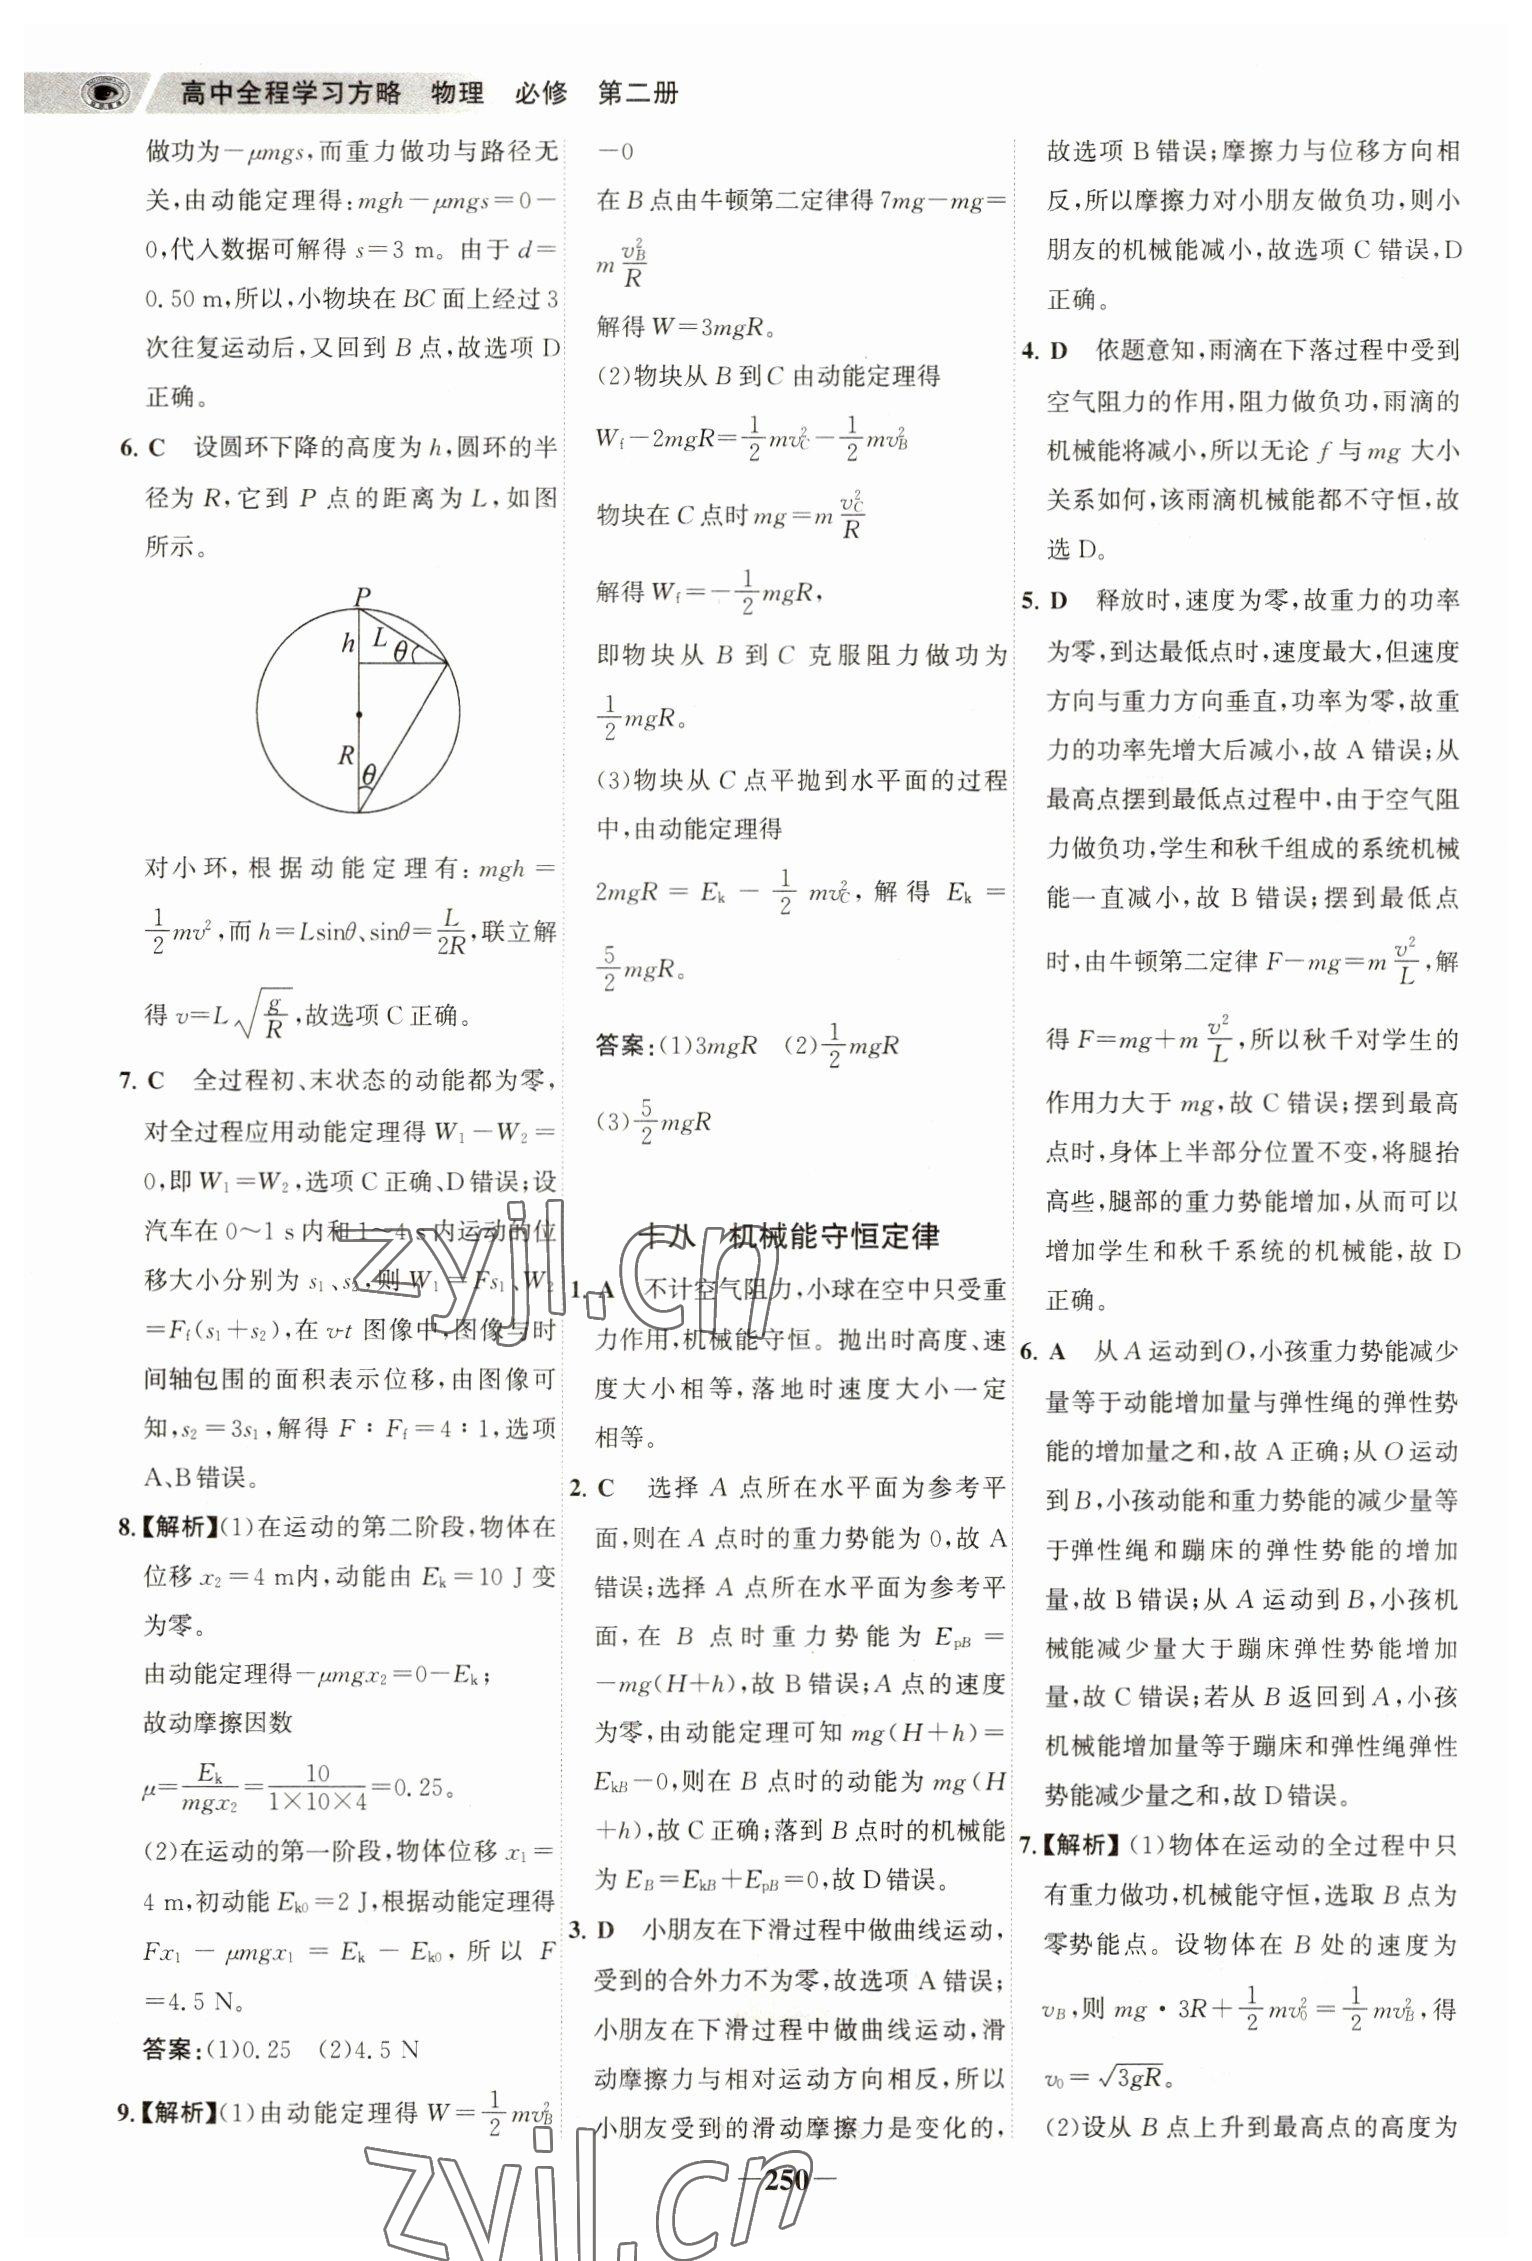 高中全程学习方略　物理　必修　第二册
做功为－μmgs,而重力做功与路径无
关,由动能定理得:mgh－μmgs＝0－
0,代入数据可解得 s＝3 m。由于 d＝
0.50 m,所以,小物块在 BC 面上经过 3
次往复运动后,又回到 B 点,故选项 D
正确。
6. C　设圆环下降的高度为 h,圆环的半
径为 R,它到 P 点的距离为 L,如图
所示。
P
h
L
θ
R
θ
对小环,根据动能定理有:mgh＝
$\frac{1}{2}mv^2$,而 h＝Lsinθ、sinθ＝$\frac{L}{2R}$,联立解
得 v＝L$\sqrt{\frac{g}{R}}$,故选项 C 正确。
7. C　全过程初、末状态的动能都为零,
对全过程应用动能定理得 W₁－W₂＝
0,即 W₁＝W₂,选项 C 正确、D 错误;设
汽车在 0～1 s 内和 1～4 s 内运动的位
移大小分别为 s₁、s₂,则 W₁＝Fs₁、W₂
＝F_f(s₁＋s₂),在 v-t 图像中,图像与时
间轴包围的面积表示位移,由图像可
知,s₂＝3s₁,解得 F∶F_f＝4∶1,选项
A、B 错误。
8.【解析】(1)在运动的第二阶段,物体在
位移 x₂＝4 m内,动能由 E_k＝10 J 变
为零。
由动能定理得－μmgx₂＝0－E_k;
故动摩擦因数
μ＝$\frac{E_k}{mgx_2}$＝$\frac{10}{1×10×4}$＝0.25。
(2)在运动的第一阶段,物体位移 x₁＝
4 m,初动能 E_{k0}＝2 J,根据动能定理得
Fx₁－μmgx₁＝E_k－E_{k0},所以 F
＝4.5 N。
答案:(1)0.25　(2)4.5 N
9.【解析】(1)由动能定理得 W＝$\frac{1}{2}mv_B^2$
－0
在 B 点由牛顿第二定律得 7mg－mg＝
m$\frac{v_B^2}{R}$
解得 W＝3mgR。
(2)物块从 B 到 C 由动能定理得
W_f－2mgR＝$\frac{1}{2}mv_C^2$－$\frac{1}{2}mv_B^2$
物块在 C 点时 mg＝m$\frac{v_C^2}{R}$
解得 W_f＝－$\frac{1}{2}$mgR,
即物块从 B 到 C 克服阻力做功为
$\frac{1}{2}$mgR。
(3)物块从 C 点平抛到水平面的过程
中,由动能定理得
2mgR＝E_k－$\frac{1}{2}mv_C^2$,解得 E_k＝
$\frac{5}{2}$mgR。
答案:(1)3mgR　(2)$\frac{1}{2}$mgR
(3)$\frac{5}{2}$mgR
十八　机械能守恒定律
1. A　不计空气阻力,小球在空中只受重
力作用,机械能守恒。抛出时高度、速
度大小相等,落地时速度大小一定
相等。
2. C　选择 A 点所在水平面为参考平
面,则在 A 点时的重力势能为 0,故 A
错误;选择 A 点所在水平面为参考平
面,在 B 点时重力势能为 E_{pB}＝
－mg(H＋h),故 B 错误;A 点的速度
为零,由动能定理可知 mg(H＋h)＝
E_{kB}－0,则在 B 点时的动能为 mg(H
＋h),故 C 正确;落到 B 点时的机械能
为 E_B＝E_{kB}＋E_{pB}＝0,故 D 错误。
3. D　小朋友在下滑过程中做曲线运动,
受到的合外力不为零,故选项 A 错误;
小朋友在下滑过程中做曲线运动,滑
动摩擦力与相对运动方向相反,所以
小朋友受到的滑动摩擦力是变化的,
故选项 B 错误;摩擦力与位移方向相
反,所以摩擦力对小朋友做负功,则小
朋友的机械能减小,故选项 C 错误,D
正确。
4. D　依题意知,雨滴在下落过程中受到
空气阻力的作用,阻力做负功,雨滴的
机械能将减小,所以无论 f 与 mg 大小
关系如何,该雨滴机械能都不守恒,故
选 D。
5. D　释放时,速度为零,故重力的功率
为零,到达最低点时,速度最大,但速度
方向与重力方向垂直,功率为零,故重
力的功率先增大后减小,故 A 错误;从
最高点摆到最低点过程中,由于空气阻
力做负功,学生和秋千组成的系统机械
能一直减小,故 B 错误;摆到最低点
时,由牛顿第二定律 F－mg＝m$\frac{v^2}{L}$,解
得 F＝mg＋m$\frac{v^2}{L}$,所以秋千对学生的
作用力大于 mg,故 C 错误;摆到最高
点时,身体上半部分位置不变,将腿抬
高些,腿部的重力势能增加,从而可以
增加学生和秋千系统的机械能,故 D
正确。
6. A　从 A 运动到O,小孩重力势能减少
量等于动能增加量与弹性绳的弹性势
能的增加量之和,故 A 正确;从 O 运动
到 B,小孩动能和重力势能的减少量等
于弹性绳和蹦床的弹性势能的增加
量,故 B 错误;从 A 运动到 B,小孩机
械能减少量大于蹦床弹性势能增加
量,故 C 错误;若从 B 返回到 A,小孩
机械能增加量等于蹦床和弹性绳弹性
势能减少量之和,故 D 错误。
7.【解析】(1)物体在运动的全过程中只
有重力做功,机械能守恒,选取 B 点为
零势能点。设物体在 B 处的速度为
v_B,则 mg·3R＋$\frac{1}{2}mv_0^2$＝$\frac{1}{2}mv_B^2$,得
v₀＝$\sqrt{3gR}$。
(2)设从 B 点上升到最高点的高度为
—250—
zyjl.cn
zyjl.cn